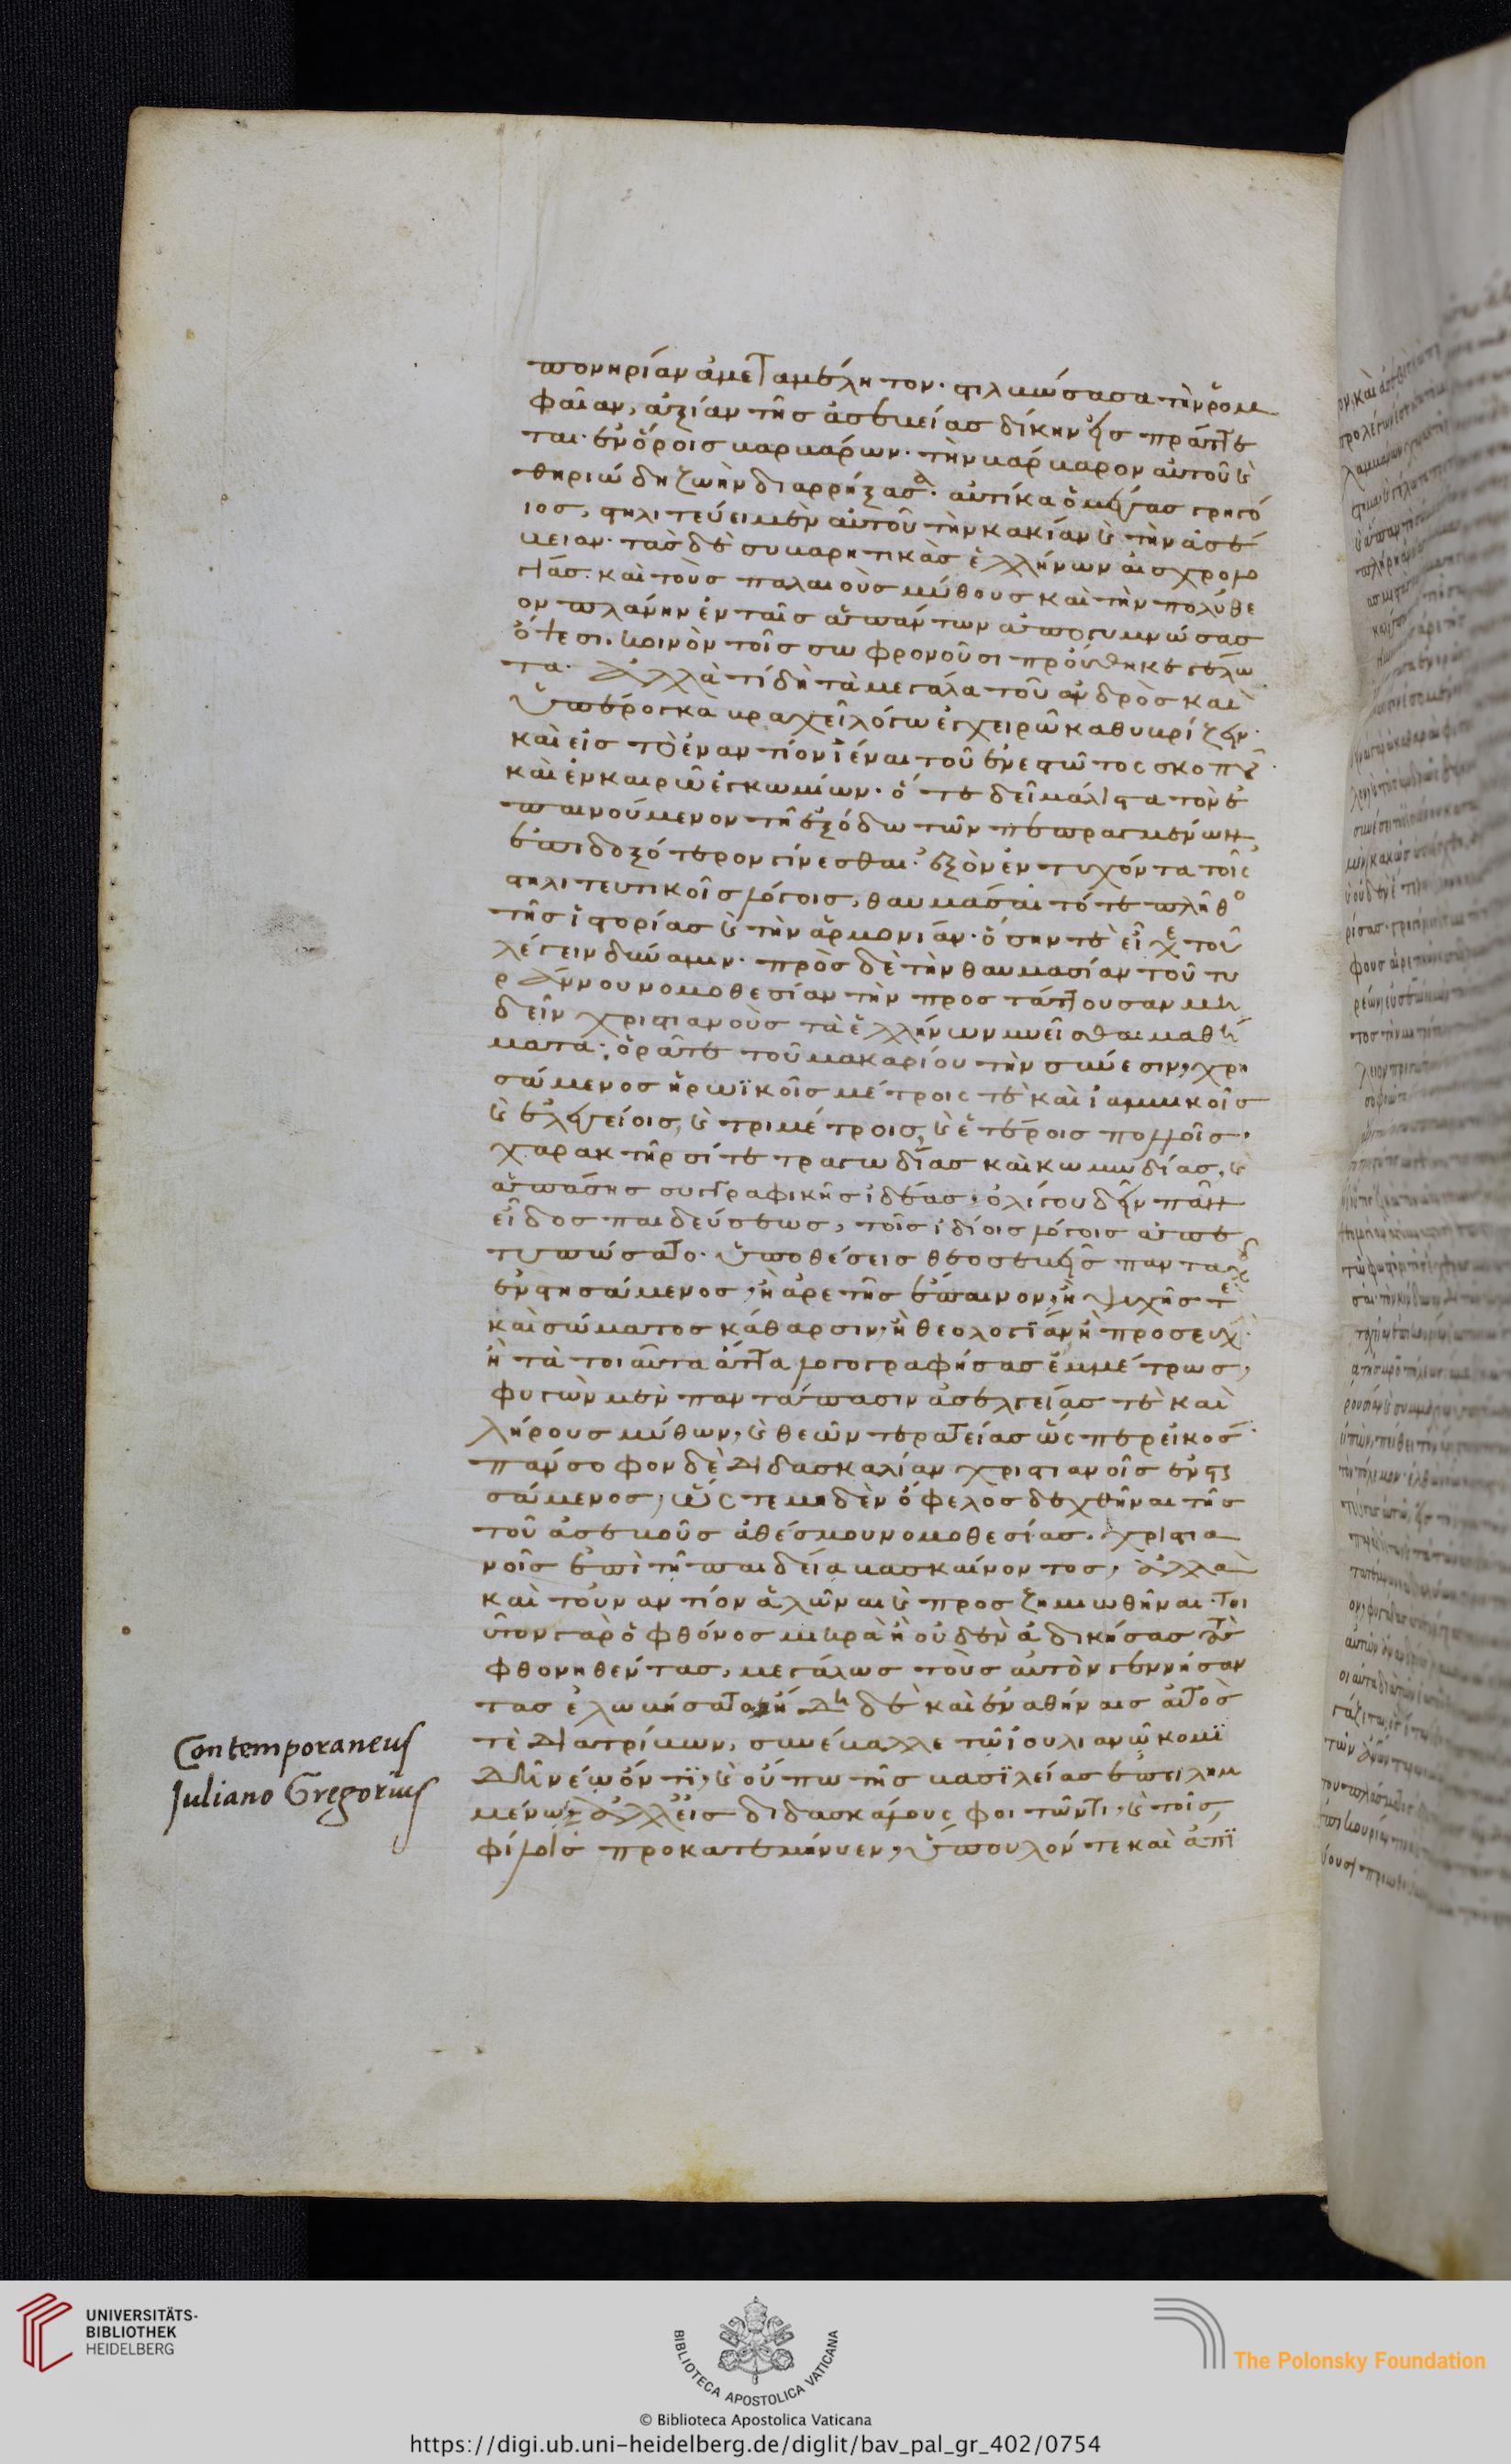 πονηρίαν ἀμεταμέλητον· στιλβώσασα τὴν ῥομ
φαῖαν, ἀξίαν τῆς ἀσεβείας δίκην εἰσπράττε
ται· ἐν ὅροις βαρβάρων· τὴν βάρβαρον αὐτοῦ καὶ
θηριώδη ζωὴν διαρρήξασα· αὐτίκα ὁ μέγας γρηγό
ιος, στηλιτεύει μὲν αὐτοῦ τὴν κακίαν καὶ τὴν ἀσέ
βειαν· τὰς δὲ συβαριτικὰς ἑλλήνων αἰσχρολο
γίας· καὶ τοὺς παλαιοὺς μύθους καὶ τὴν πολύθε
ον πλάνην ἐν ταῖς ἁπάντων ἀπογυμνώσας
ὄψεσι. κοινὸν τοῖς σωφρονοῦσι προύθηκε γέλω
τα· ἀλλὰ τί δὴ τὰ μεγάλα τοῦ ἀνδρὸς καὶ
ὑπέρογκα βραχεῖ λόγω ἐγχειρῶ καθυβρίζειν·
καὶ εἰς τὸ ἐναντίον ἰέναι τοῦ ἐνεστῶτος σκοποῦ·
καὶ ἐν καιρῶ ἐγκωμίων· ὅτε δεῖ μάλιστα τὸν ἐ
παινούμενον τῆ ἐξόδω τῶν πεπραγμένων
ἐπιδοξότερον γίνεσθαι· ἐξὸν ἐντυχόντα τοῖς
στηλιτευτικοῖς λόγοις, θαυμάσαι τό τε πλῆθος
τῆς ἱστορίας καὶ τὴν ἁρμονίαν· ὅσην τε εἶχε τοῦ
λέγειν δύναμιν· πρὸς δὲ τὴν θαυμασίαν τοῦ τυ
ράννου νομοθεσίαν τὴν προστάττουσαν μὴ
δεῖν χριστιανοὺς τὰ ἑλλήνων μυεῖσθαι μαθή
ματα· ὁρᾶτε τοῦ μακαρίου τὴν σύνεσιν, χρη
σάμενος ἡρωϊκοῖς μέτροις τὲ καὶ ἰαμβικοῖς
καὶ ἐλεγείοις, καὶ τριμέτροις, καὶ ἑτέροις πολλοῖς·
χαρακτῆρσί τε τραγωδίας καὶ κωμωδίας, καὶ
ἁπάσης συγγραφικῆς ἰδέας· ὀλίγου δεῖν πᾶν
εἶδος παιδεύσεως, τοῖς ἰδίοις λόγοις ἀπε
τυπώσατο· ὑποθέσεις θεοσεβεῖς πανταχοῦ
ἐνστησάμενος, ἢ ἀρετῆς ἔπαινον, ἢ ψυχῆς τε
καὶ σώματος κάθαρσιν· ἢ θεολογίαν ἢ προσευχὴν·
ἢ τὰ τοιαῦτα ἄττα λογογραφήσας ἐμμέτρως,
φυγὼν μὲν παντάπασιν ἀσελγείας τὲ καὶ
λήρους μύθων, καὶ θεῶν τερατείας ὥσπερ εἰκός·
πάνσοφον δὲ διδασκαλίαν χριστιανοῖς ἐνστη
σάμενος, ὥστε μηδὲν ὄφελος δειχθῆναι τῆς
τοῦ ἀσεβοῦς ἀθέσμου νομοθεσίας. χριστια
νοῖς ἐπὶ τῆ παιδεία βασκαίνοντος, ἀλλὰ
καὶ τοὐναντίον ἁλῶναι καὶ προσζημιωθῆναι· τοι
οῦτον γὰρ ὁ φθόνος μικρὰ ἢ οὐδὲν ἀδικήσας τοὺς
φθονηθέντας, μεγάλως τοὺς αὐτὸν γεννήσαν
τας ἐλωβήσατο· ἤδη δὲ καὶ ἐν ἀθήναις αὐτὸς
τὲ διατρίβων, συνέβαλλε τῶ ἰουλιανῶ κομι
δῆ νέω ὄντι, καὶ οὔπω τῆς βασιλείας ἐπειλημ
μένω, ἀλλ' εἰς διδασκάλους φοιτῶντι, καὶ τοῖς
φίλοις προκατεμήνυεν, ὕπουλόν τε καὶ ἀπι
Contemporaneus
Iuliano Gregorius
UNIVERSITÄTS-
BIBLIOTHEK
HEIDELBERG
BIBLIOTECA APOSTOLICA VATICANA
The Polonsky Foundation
© Biblioteca Apostolica Vaticana
https://digi.ub.uni-heidelberg.de/diglit/bav_pal_gr_402/0754